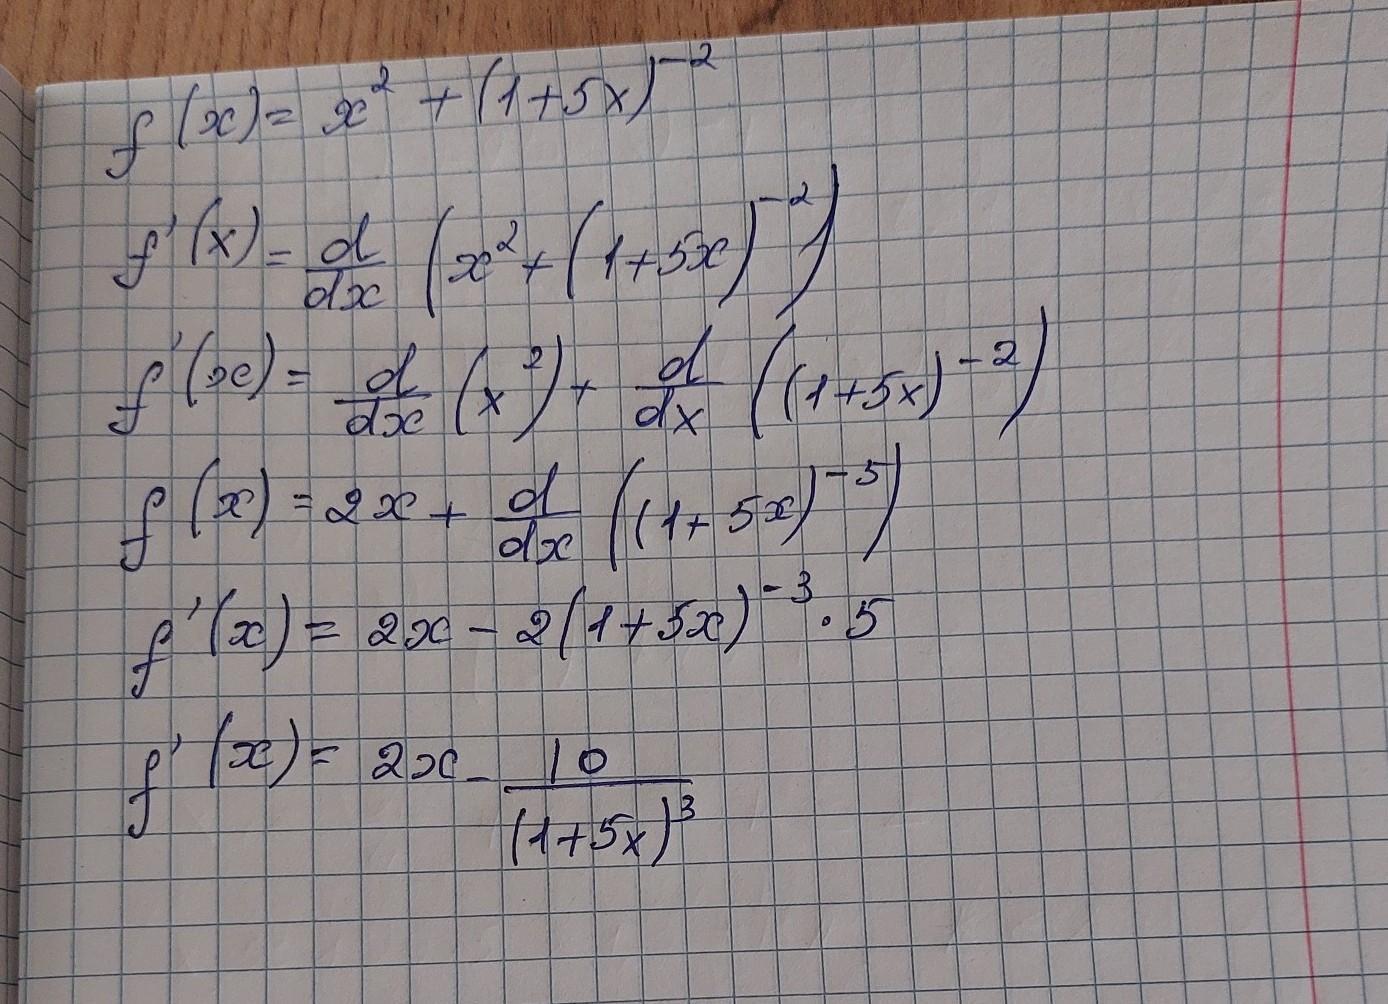 f(x) = x² + (1+5x)⁻²
f'(x) = d/dx (x² + (1+5x)⁻²)
f'(x) = d/dx (x²) + d/dx ((1+5x)⁻²)
f(x) = 2x + d/dx ((1+5x)⁻⁵)
f'(x) = 2x - 2(1+5x)⁻³ · 5
f'(x) = 2x - 10/(1+5x)³